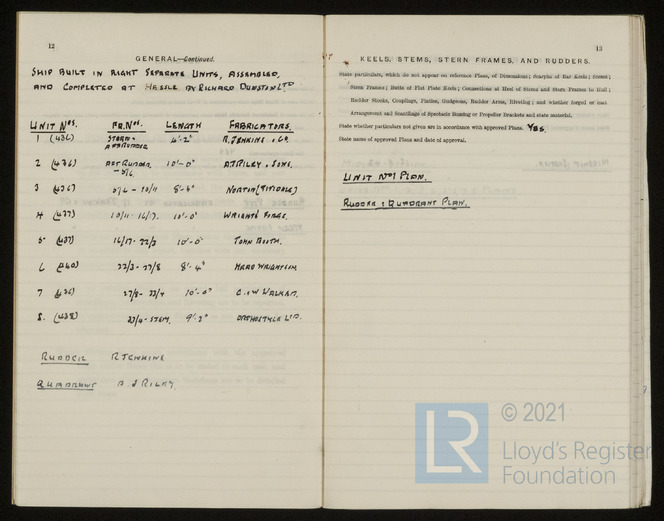 12
GENERAL—Continued.
SHIP BUILT IN EIGHT SEPARATE UNITS, ASSEMBLED,
AND COMPLETED AT HESSLE BY RICHARD DUNSTON LTD
UNIT Nos. FR. Nos. LENGTH FABRICATORS.
1 (436) STERN - AFT RUDDER 6'-2" R. JENKINS & CO.
2 (436) AFT RUDDER - 5/6 10'-0" A.J. RILEY & SONS.
3 (436) 5/6 - 10/11 8'-4" NORTH (TEESSIDE)
4 (437) 10/11 - 16/17. 10'-0" WRIGHTS FORGE.
5 (437) 16/17 - 22/3 10'-0" JOHN BOOTH.
6 22/3 - 27/8 8'-4" HEAD WRIGHTSON
7 (436) 27/8 - 33/4 10'-0" C & W WALKER.
8. (438) 33/4 - STEM. 9'-2" ORTHOSTYLE LTD.
RUDDER R JENKINS
QUADRANT A. J RILEY.
13
KEELS, STEMS, STERN FRAMES, AND RUDDERS.
State particulars, which do not appear on reference Plans, of Dimensions; Scarphs of Bar Keels; Stems;
Stern Frames; Butts of Flat Plate Keels; Connections at Heel of Stems and Stern Frames to Hull;
Rudder Stocks, Couplings, Pintles, Gudgeons, Rudder Arms, Riveting; and whether forged or cast
Arrangement and Scantlings of Spectacle Bossing or Propeller Brackets and state material.
State whether particulars not given are in accordance with approved Plans. YES.
State name of approved Plans and date of approval.
UNIT No 1 PLAN.
RUDDER & QUADRANT PLAN.
LR
© 2021
Lloyd's Register
Foundation